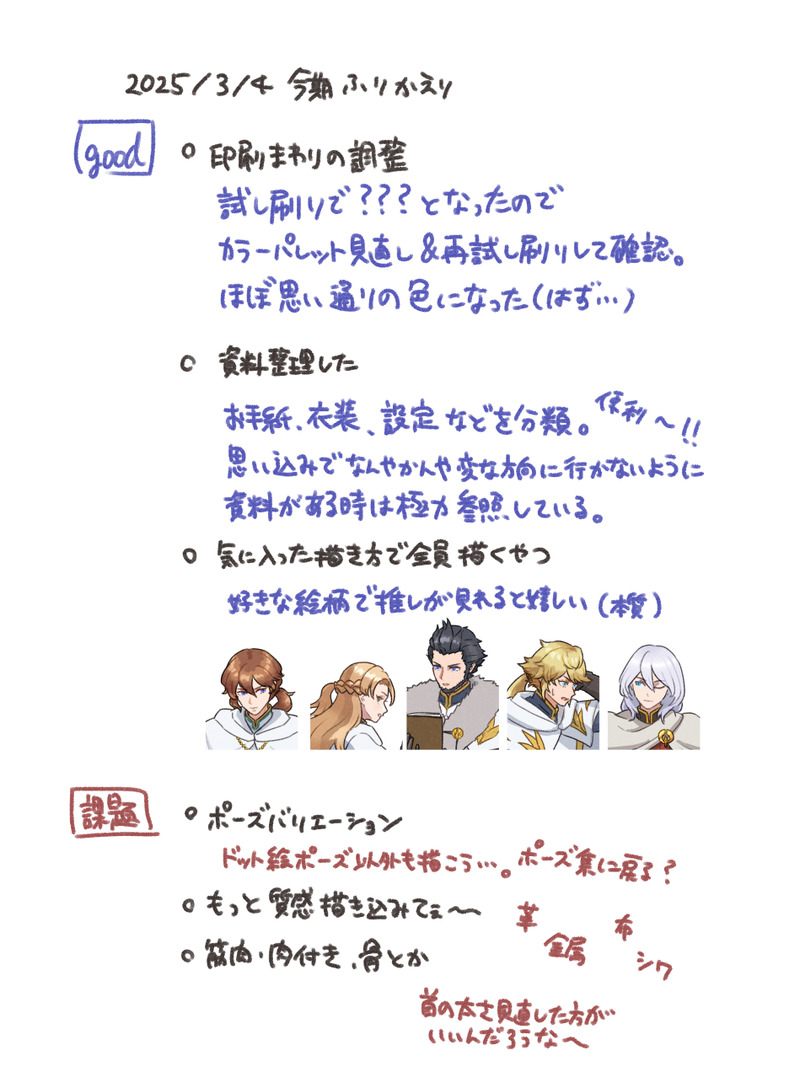 2025/3/4 今期ふりかえり
good
○ 印刷まわりの調整
試し刷りで???となったので
カラーパレット見直し&再試し刷りして確認。
ほぼ思い通りの色になった(はず…)
○ 資料整理した
お手紙、衣装、設定などを分類。便利〜!!
思い込みでなんやかんや変な方向に行かないように
資料がある時は極力参照している。
○ 気に入った描き方で全員描くやつ
好きな絵柄で推しが見れると嬉しい(本質)
課題
○ ポーズバリエーション
ドット絵ポーズ以外も描こう…。ポーズ集に戻る?
○ もっと質感描き込みてぇ〜
革
布
金属
シワ
○ 筋肉・肉付き、骨とか
首の太さ見直した方が
いいんだろうな〜